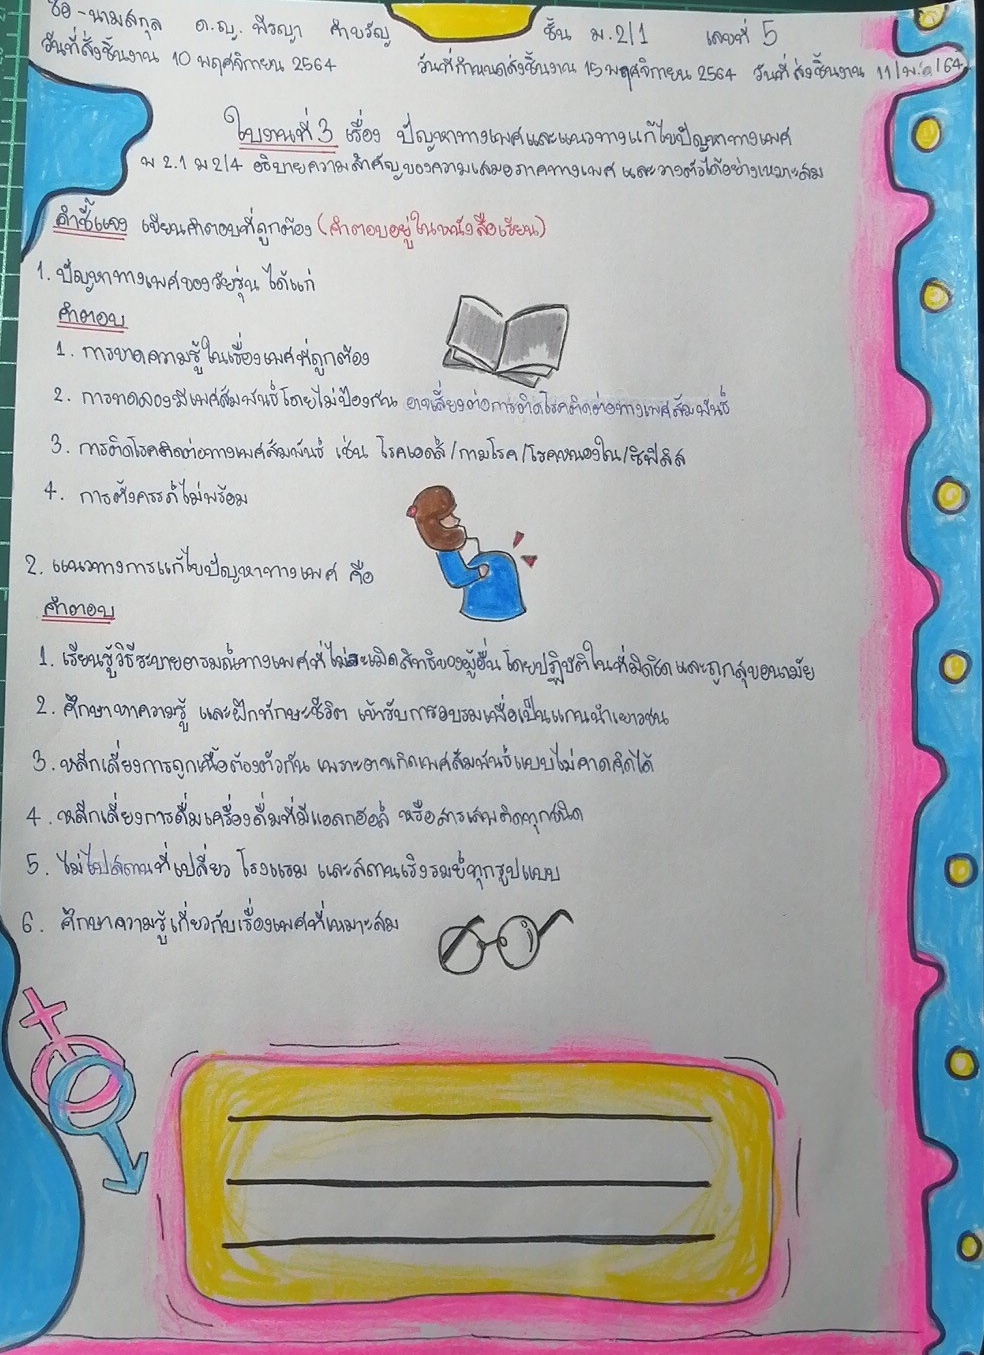 ชื่อ-นามสกุล ด.ญ. พีรญา คำขวัญ ชั้น ม.2/1 เลขที่ 5
วันที่สั่งชิ้นงาน 10 พฤศจิกายน 2564 วันที่กำหนดส่งชิ้นงาน 15 พฤศจิกายน 2564 วันที่ส่งชิ้นงาน 11/พ.ย/64
ใบงานที่ 3 เรื่อง ปัญหาทางเพศและแนวทางแก้ไขปัญหาทางเพศ
พ 2.1 ม 2/4 อธิบายความสำคัญของความเสมอภาคทางเพศ และวางตัวได้อย่างเหมาะสม
คำชี้แจง เขียนคำตอบที่ถูกต้อง (คำตอบอยู่ในหนังสือเรียน)
1. ปัญหาทางเพศของวัยรุ่น ได้แก่
คำตอบ
1. การขาดความรู้ในเรื่องเพศที่ถูกต้อง
2. การทดลองมีเพศสัมพันธ์โดยไม่ป้องกัน อาจเสี่ยงต่อการติดโรคติดต่อทางเพศสัมพันธ์
3. การติดโรคติดต่อทางเพศสัมพันธ์ เช่น โรคเอดส์/กามโรค/โรคหนองใน/ซิฟิลิส
4. การตั้งครรภ์ไม่พร้อม
2. แนวทางการแก้ไขปัญหาทางเพศ คือ
คำตอบ
1. เรียนรู้วิธีระบายอารมณ์ทางเพศที่ไม่ละเมิดสิทธิของผู้อื่น โดยปฏิบัติในที่มิดชิด และถูกสุขอนามัย
2. ศึกษาหาความรู้ และฝึกทักษะชีวิต เข้ารับการอบรมเพื่อเป็นแกนนำเยาวชน
3. หลีกเลี่ยงการถูกเนื้อต้องตัวกัน เพราะอาจเกิดเพศสัมพันธ์แบบไม่คาดคิดได้
4. หลีกเลี่ยงการดื่มเครื่องดื่มที่มีแอลกอฮอล์ หรือสารเสพติดทุกชนิด
5. ไม่ไปสถานที่เปลี่ยว โรงแรม และสถานเริงรมย์ทุกรูปแบบ
6. ศึกษาความรู้เกี่ยวกับเรื่องเพศที่เหมาะสม